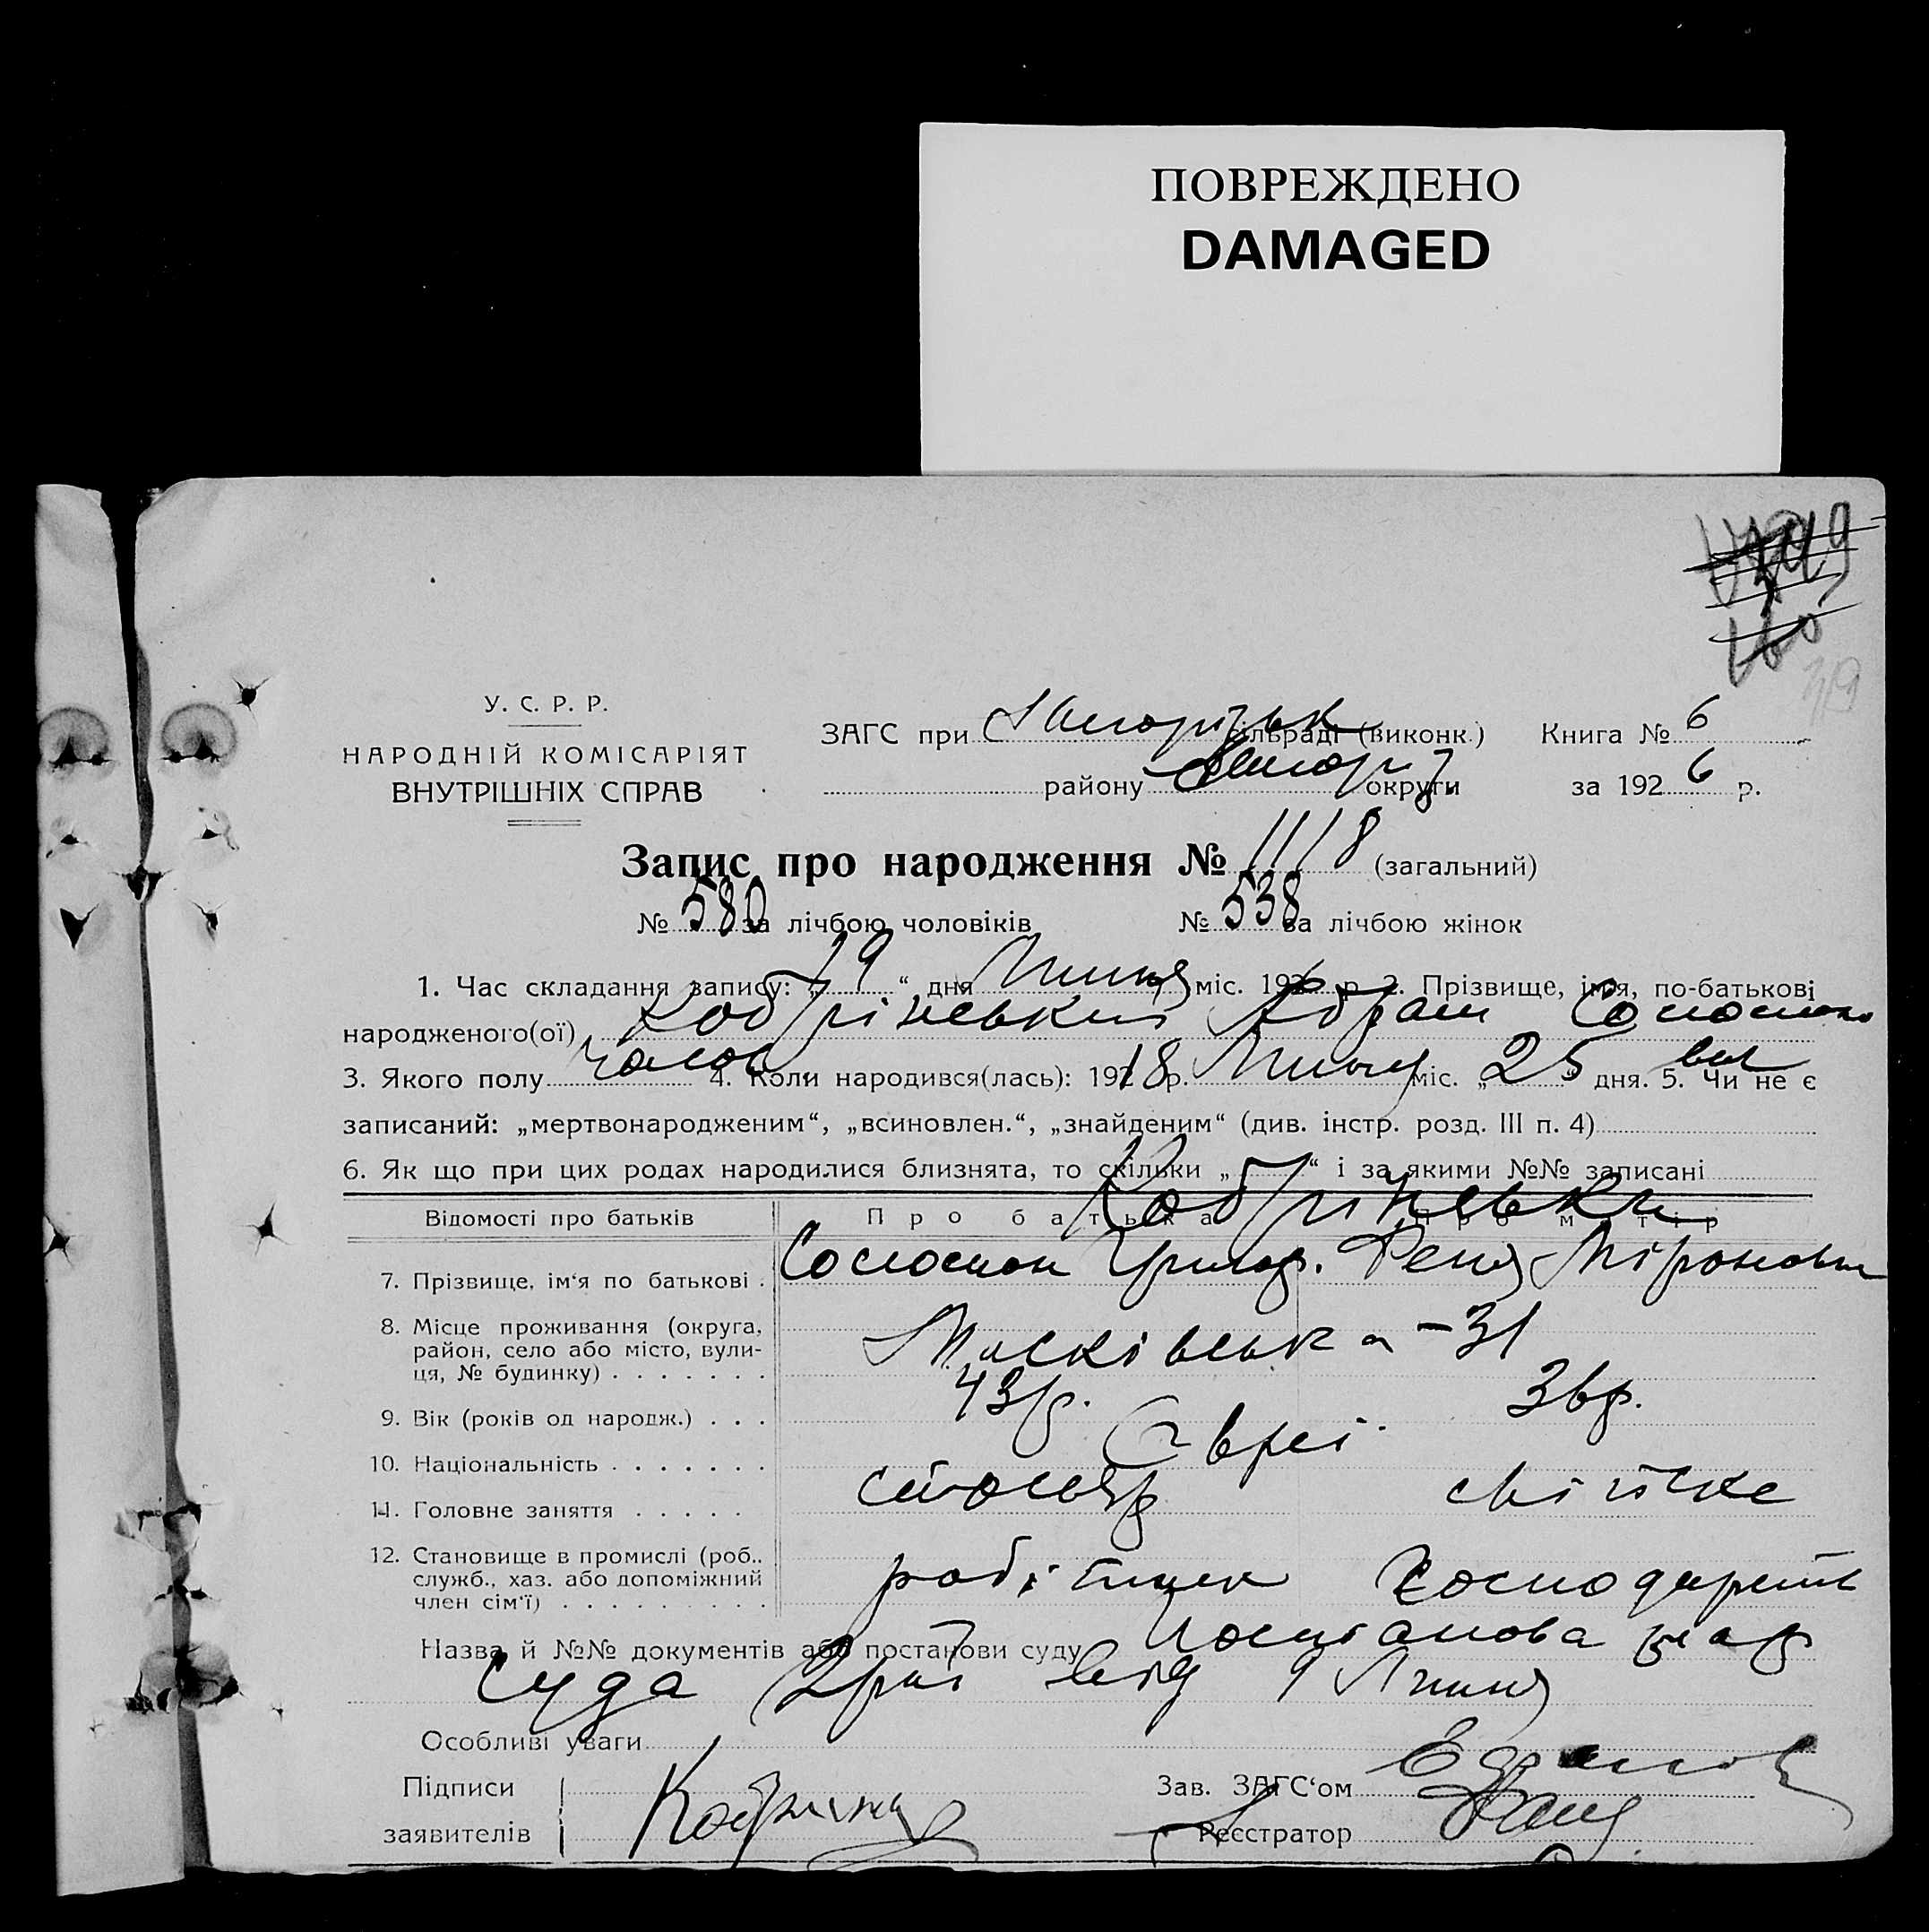 ПОВРЕЖДЕНО
DAMAGED
У. С. Р. Р.
НАРОДНІЙ КОМІСАРІЯТ
ВНУТРІШНІХ СПРАВ
ЗАГС при сільраді (виконк.) Книга № 6
району округи за 1926 р.
Запис про народження № 1118 (загальний)
№ 580 за лічбою чоловіків № 538 за лічбою жінок
1. Час складання запису: „19“ дня Липня міс. 1926 р. 2. Прізвище, ім‘я, по-батькові
народженого(ої) Кобрінський Абрам
3. Якого полу чолов. 4. Коли народився(лась): 1918 р. міс. „25“ дня. 5. Чи не є
записаний: „мертвонародженим“, „всиновлен.“, „знайденим“ (див. інстр. розд. III п. 4)
6. Як що при цих родах народилися близнята, то скільки „ “ і за якими №№ записані
Кобрінськи
Відомості про батьків Про батька Про матір
7. Прізвище, ім‘я по батькові . Соломон Григор. Реня Міроновна
8. Місце проживання (округа,
район, село або місто, вули-
ця, № будинку) . . . . . . . Московська – 31
9. Вік (років од народж.) . . . 43 р. 36 р.
10. Національність . . . . . . . Євреї
11. Головне заняття . . . . . столяр хатнє
12. Становище в промислі (роб..
служб., хаз. або допоміжний
член сім‘ї) . . . . . . . . . робітник
Назва й №№ документів або постанови суду Постанова нар
суда від 9 Липня
Особливі уваги
Підписи
заявителів
Зав. ЗАГС‘ом
Реєстратор